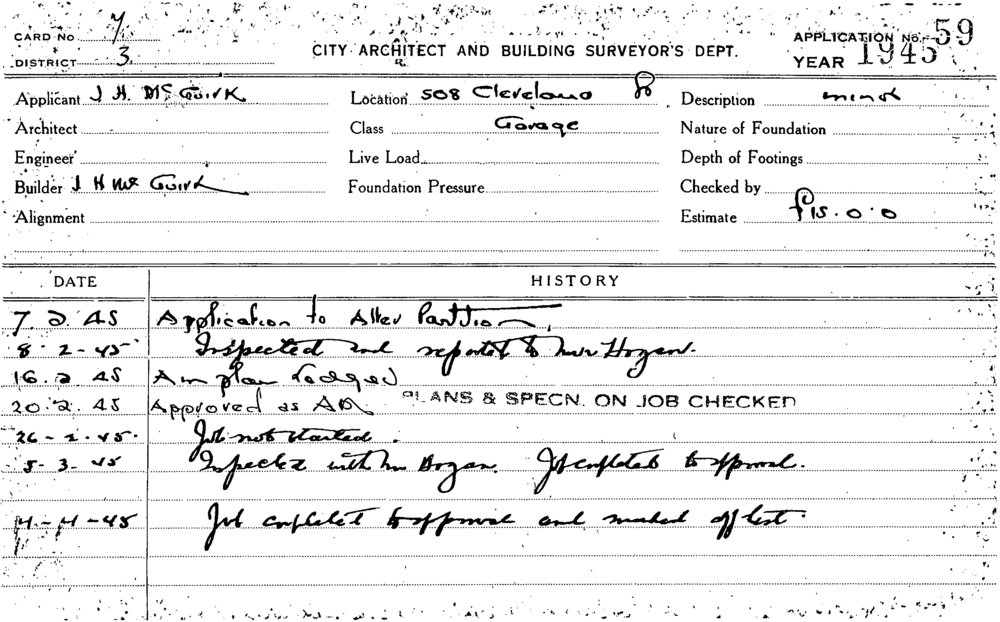 CARD NO 7
DISTRICT 3
CITY ARCHITECT AND BUILDING SURVEYOR'S DEPT.
APPLICATION No. 59
YEAR 1945
Applicant J H McGuirk Location 508 Cleveland Description minor
Architect Class Garage Nature of Foundation
Engineer Live Load Depth of Footings
Builder J H Mc Guirk Foundation Pressure Checked by
Alignment Estimate £15.0.0
DATE HISTORY
7. 2. 45 Application to Alter Partition.
8-2-45 Inspected and reported to Mr Hogan.
16.2 45 Am plan Lodged
20.2.45 Approved as PLANS & SPECN. ON JOB CHECKED
26-2-45. Job not started.
5-3.45 Inspected with Mr Hogan. Job completed to approval.
4-45 Job complete to approval and marked off list.